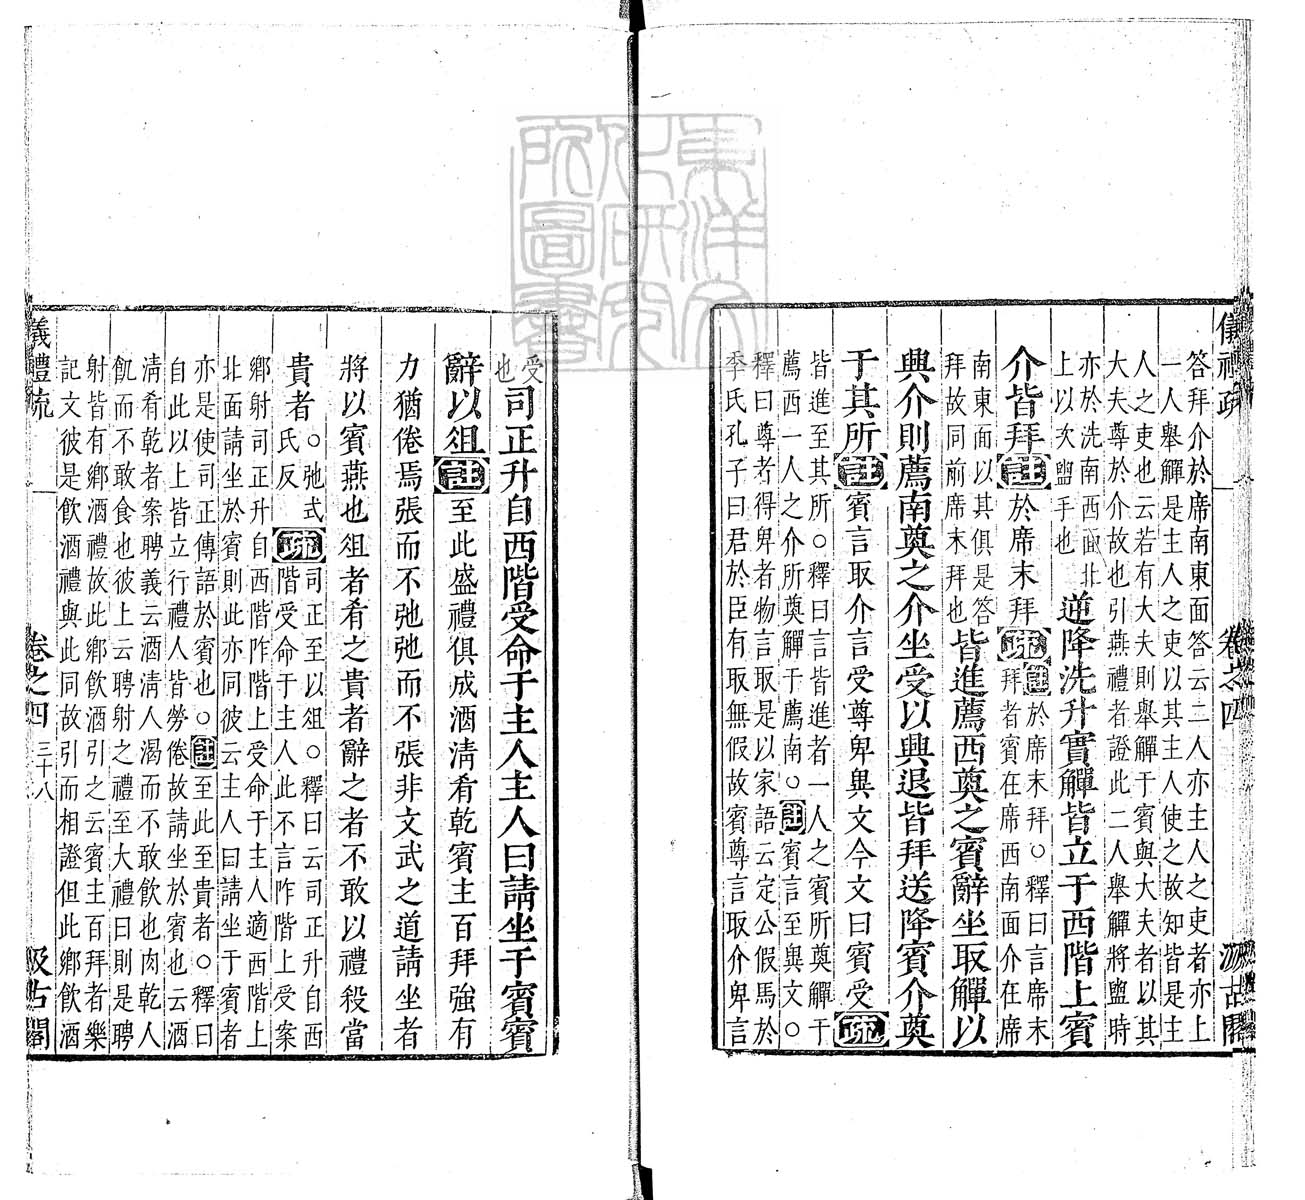 儀禮疏 卷之四 汲古閣
答拜介於席南東面答云二人亦主人之吏者亦上
一人舉觶是主人之吏以其主人使之故知皆是主
人之吏也云若有大夫則舉觶于賓與大夫者以其
大夫尊於介故也引燕禮者證此二人舉觶將盥時
亦於洗南西面北
上以次盥手也
逆降洗升實觶皆立于西階上賓
介皆拜註於席末拜疏
註於席末拜○釋曰言席末
拜者賓在席西南面介在席
南東面以其俱是答
拜故同前席末拜也
皆進薦西奠之賓辭坐取觶以
興介則薦南奠之介坐受以興退皆拜送降賓介奠
于其所註賓言取介言受尊卑異文今文曰賓受疏
皆進至其所○釋曰言皆進者一人之賓所奠觶于
薦西一人之介所奠觶于薦南○註賓言至異文○
釋曰尊者得卑者物言取是以家語云定公假馬於
季氏孔子曰君於臣有取無假故賓尊言取介卑言
受
也
司正升自西階受命于主人主人曰請坐于賓賓
辭以俎註至此盛禮俱成酒清肴乾賓主百拜強有
力猶倦焉張而不弛弛而不張非文武之道請坐者
將以賓燕也俎者肴之貴者辭之者不敢以禮殺當
貴者
○弛式
氏反
疏
司正至以俎○釋曰云司正升自西
階受命于主人此不言阼階上受案
鄉射司正升自西階阼階上受命于主人適西階上
北面請坐於賓則此亦同彼云主人曰請坐于賓者
亦是使司正傳語於賓也○註至此至貴者○釋曰
自此以上皆立行禮人皆勞倦故請坐於賓也云酒
清肴乾者案聘義云酒清人渴而不敢飲也肉乾人
飢而不敢食也彼上云聘射之禮至大禮曰則是聘
射皆有鄉酒禮故此鄉飲酒引之云賓主百拜者樂
記文彼是飲酒禮與此同故引而相證但此鄉飲酒
儀禮疏 卷之四 三十八 汲古閣
東洋文化研究所圖書